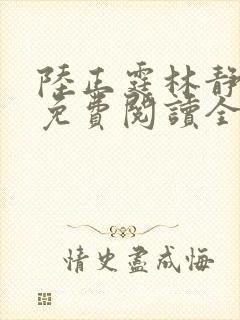 陸正霆林靜
免費閱讀全
情史盡成悔